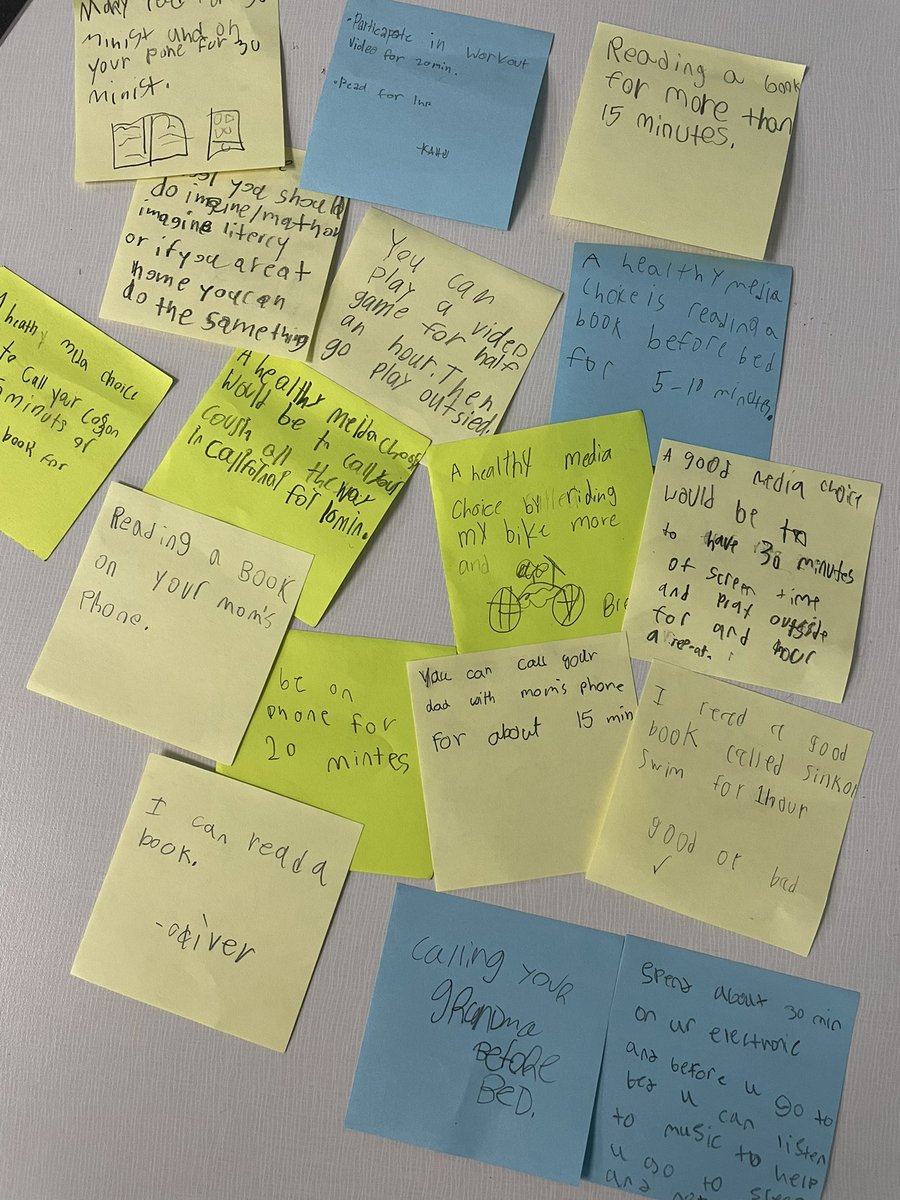 minist and on
your pone for 30
minist.
•Participate in workout
video for 20min.
•Read for 1hr
Reading a book
for more than
15 minutes.
you should
do imagine/mathor
imagine litercy
or if you are at
home you can
do the same thing
You can
play a video
game for half
an hour. Then
go play outsied.
A healthy media
choice is reading a
book before bed
for 5-10 minutes.
heathy mida choice
to call your
minuts or
book for
A healthy meida choose
would be to call your
cousin all the way
in
for 10min.
A healthy media
choice by riding
my bike more
and
A good media choice
would be to
to have 30 minutes
of screen time
and play outside
for and hour
a repeat.
Reading a BOOK
on your mom's
Phone.
be on
phone for
20 mintes
You can call your
dad with mom's phone
for about 15 min
I read a good
book called sink or
swim for 1hour
good or bad
✓
I can read a
book.
Calling your
grandma
BeFore
BeD.
Spend about 30 min
on ur electronic
and before u go to
bed u can listen
to music to help
u go to sleep
and